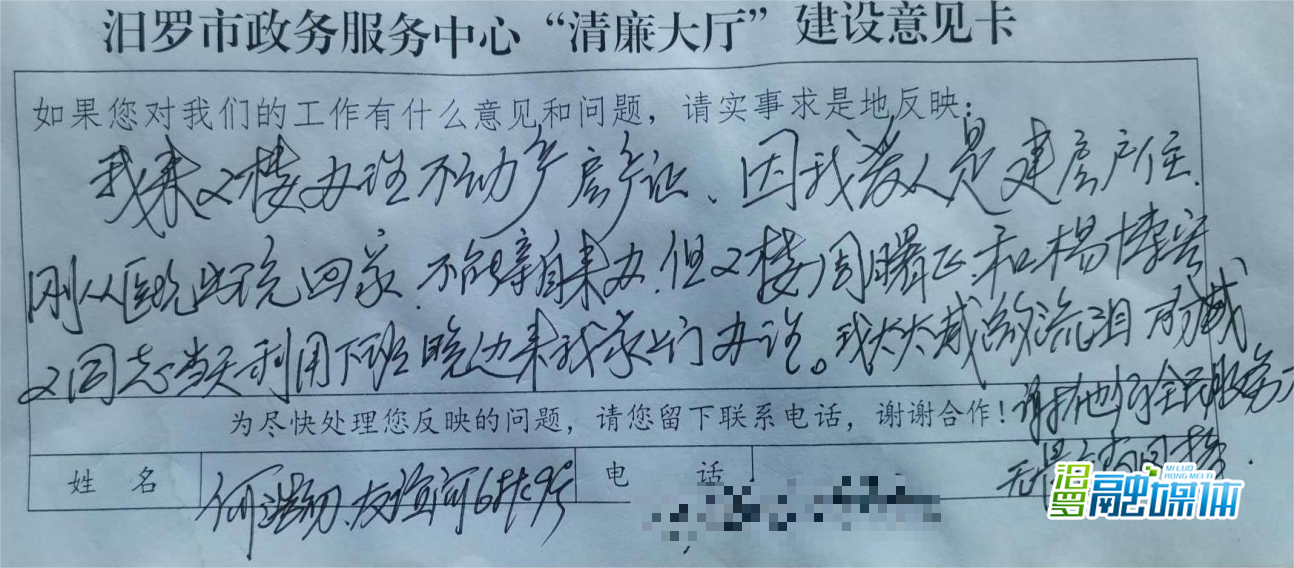 汨罗市政务服务中心“清廉大厅”建设意见卡
如果您对我们的工作有什么意见和问题，请实事求是地反映：
我来2楼办理不动产房产证、因我爱人是建房产住.
刚从医院出院回家.不能亲自来办.但2楼周曙正和杨
2同志当天利用下班晚边来我家上门办证。我太太感激流泪
感谢他们全民服务
为尽快处理您反映的问题，请您留下联系电话，谢谢合作！
姓 名
何 友谊河6排9号
电 话
汨罗
MI LUO
RONG MEI TI
融媒体